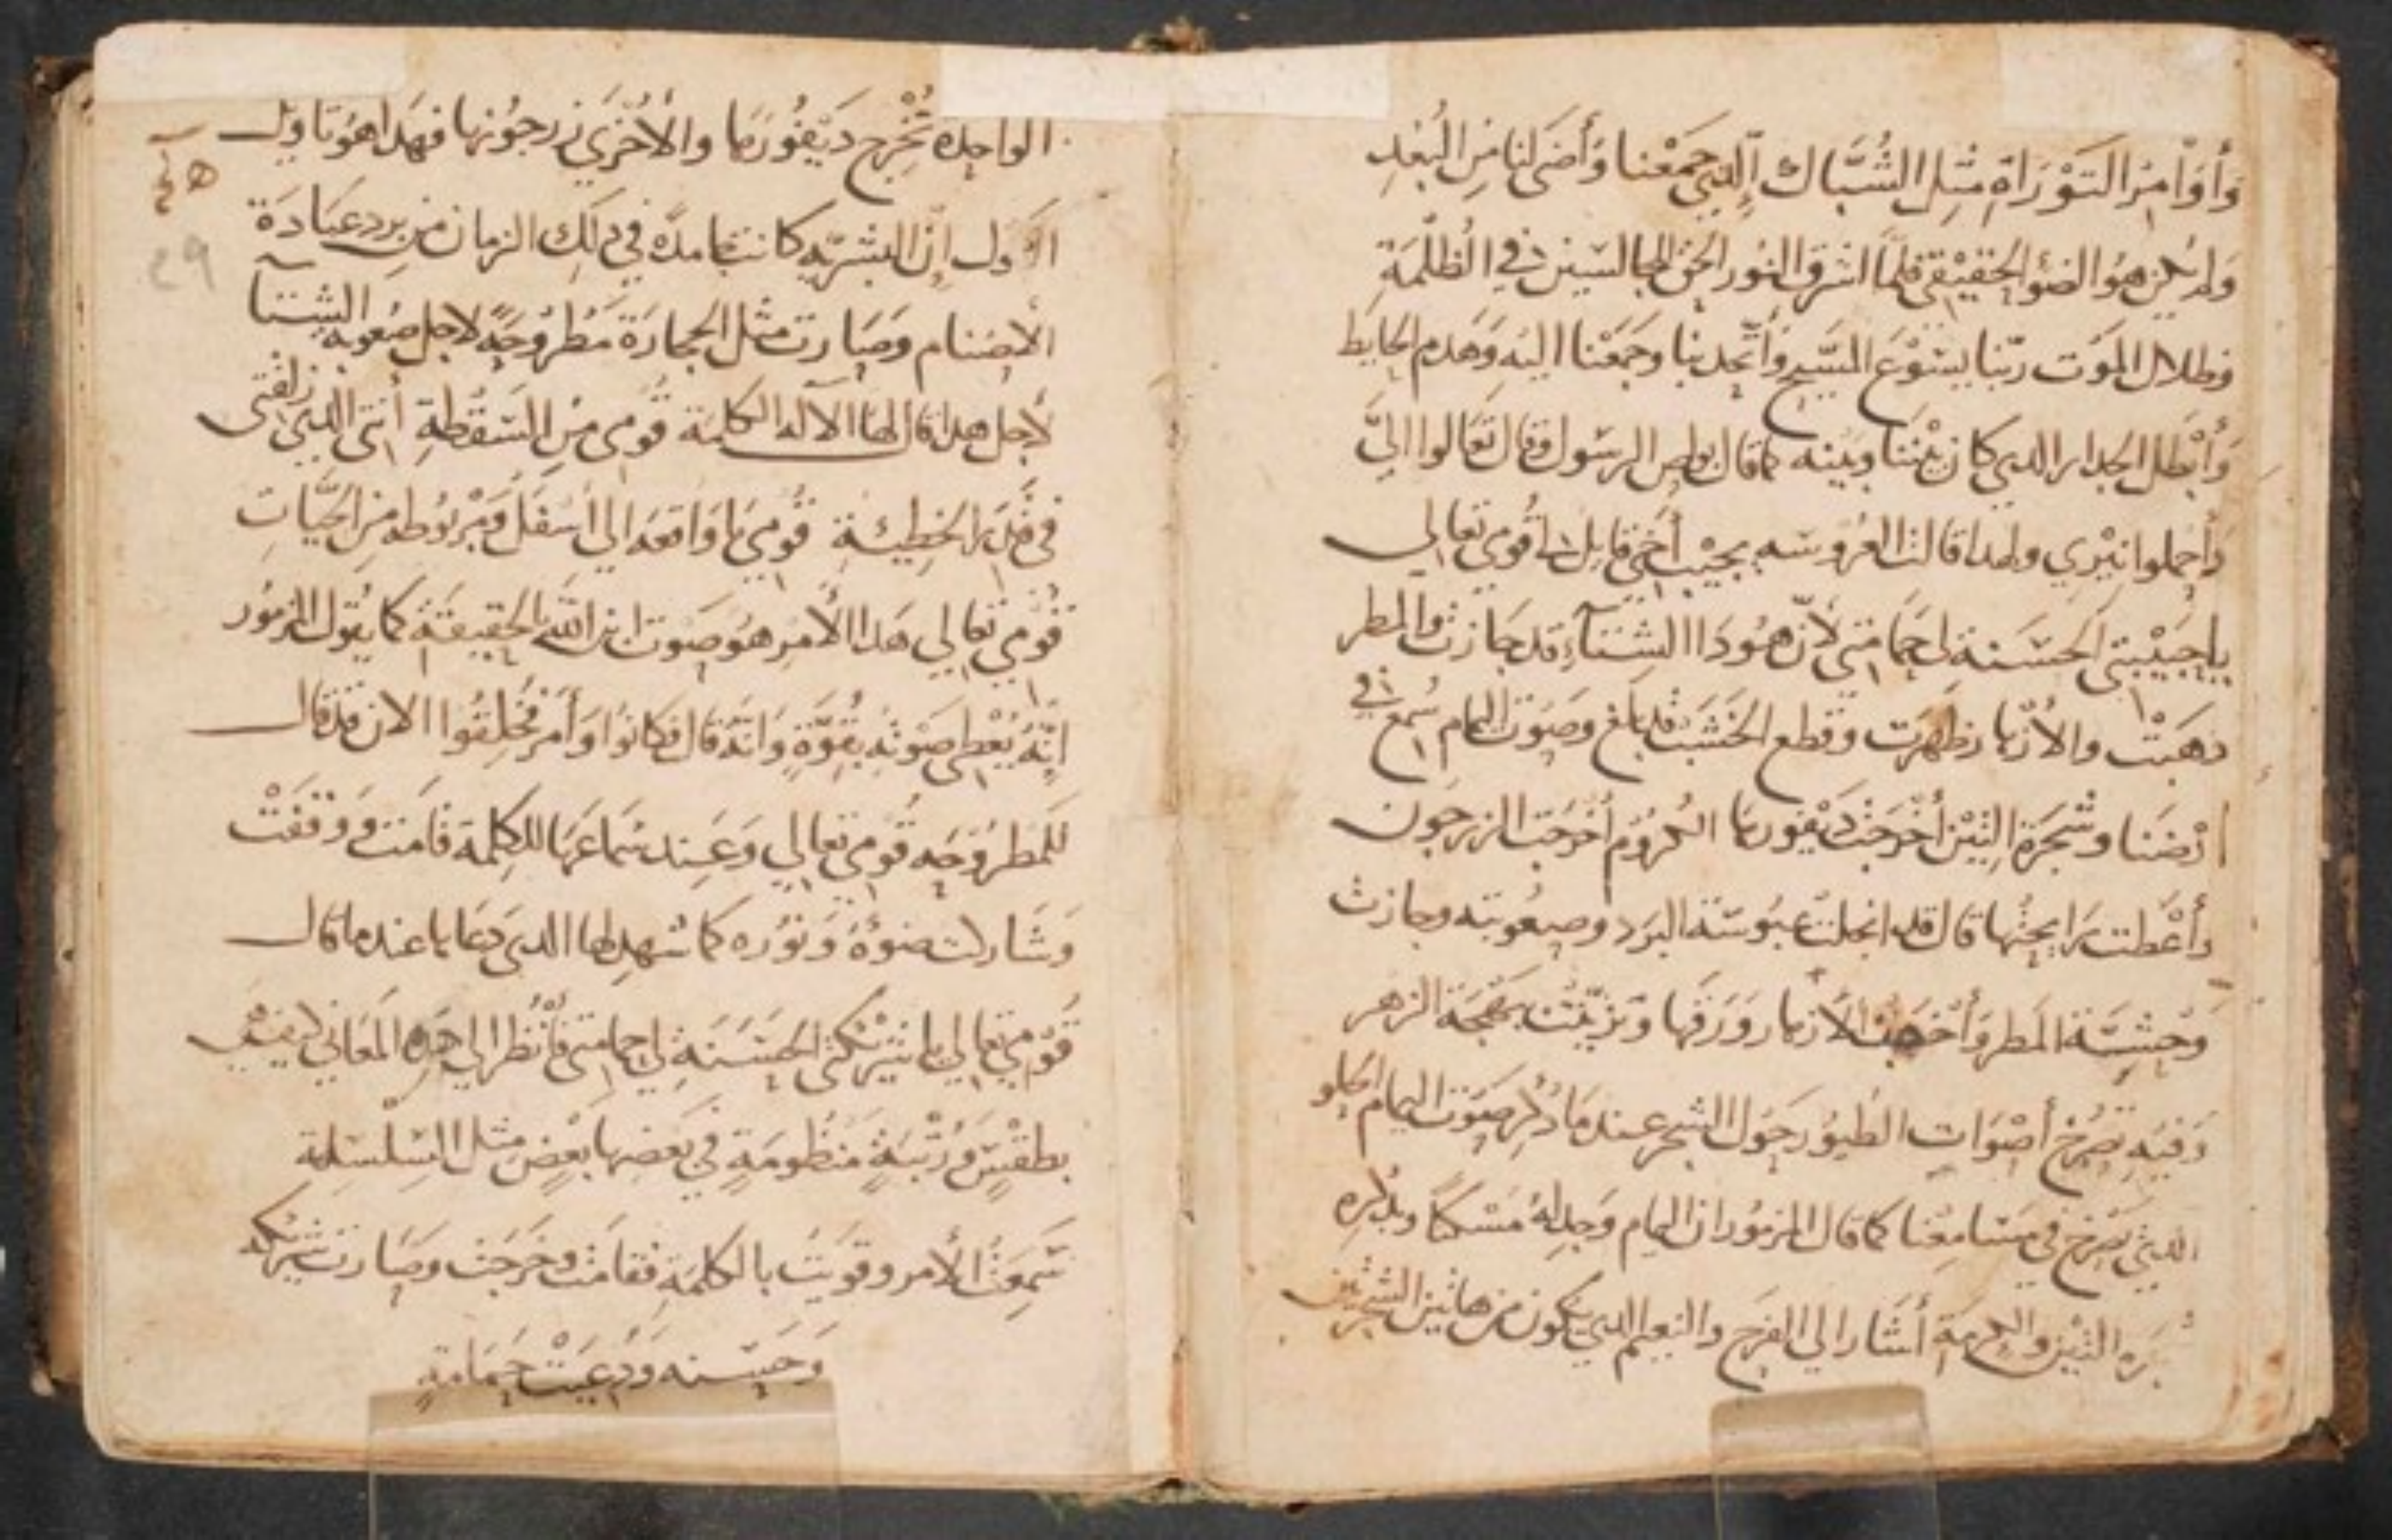 وَأَوَامِرَ التَوْرَاةِ مثِل الشُبَّاك الَّدِي جَمَعْنا وَأَضَى لنا مِن البُعْدِ
وَلم يَكن هوُ الضوُ الحَقيْقي فلمَّا اشرق النوُر الحق للجالسَين في الظُلْمَةِ
وظلال الموَت ربّنا يسَوْعَ المسَّيح وَأتَّحِد بنا وجَمعْنا اليه وَهَدم الحَايط
وَأبْطل الجدار الدي كان بَيْننا وبَينه كما قال بولص الرسَول وقال تَعَالوا اليَّ
وَأحملوا نِيْرِي ولهدا قالت العرُوسَه يجيْب أخي قايل لي قُومي تعالي
يا حَبيْبتي الحسَنة لي حمَا متي لأنّ هوُدَا الشِتَآءِ قد جَازت والمطر
دهَبَتْ والأزهار ظهَرَت وَقطع الخَشَبْ قد بَلغ وصَوَت اليمام سُمع في
ارْضَنا وشَجَرَة التِيْن أخرَجَتْ دَيْفورها الكروُم أخرَجَت الزرجَون
وأعْطت رَايحتُها قال قد انجلتْ عبوُسَة البَرَد وصعُوبته وجازت
وَحِشيَّة المطر وَأخْرَجَتْ الأزهار وَرَقها وَتزيّنَت بهَجَة الزهر
وَفيَه تصَرخ أصْوَات الطيوُر حَوُل الشجر عندمَا دُكِر صَوَت اليمام الحَلو
الدي يَصَرخ في مَسَامِعنا كما قال المزموُر ان اليمام وَجد لهُ مَسَكناً وبدكره
التيْن والكرمَة أشَار الي الفرَح والنعيم الدي يكون من هاتين الشجرتين
الواحِده تُخْرِج دَيفُورَها والأخرَي زرجوُنها فهَدا هوُ تاويل
الأوَل انّ البشَريّه كانت جامدَة في دلك الزمان من بَرد عبَادَة
الأصَنام وَصَارت مثل الحجارَة مَطرُوحَةً لاجل صعوُبة الشتآ
لأجل هدا قال لها الآله الكلمَة قُومي مِن السَقُطةِ أنتي الدي زلقتي
في قدَرَ الخطيئة قُومي يا وَاقعه الي أسَفل وَمَرْبوُطه من الحَيَّاتِ
قوُمي تعالي هَدا الأمر هوُ صَوت ابن الله بالحقيقة كما يقوُل المزموُر
انَّه يُعْطي صَوْته بقُوَّةٍ وَانّه قال فكانوُا وَأمَر فخُلقُوا الان قد قال
للمطرُوحَه قوُمي تعالي وَعند سَماعَها للكلمة قامَت وَوَقفَتْ
وَشَاركت ضوُهُ وَنوُره كما شهد لها الدي دعَاها عندما قال
قوُمي تعالي يا شرَيْكتي الحسَنَةِ لي حمامتي فأنْظر الي هَده المعَاني
بطقسٍ وَرُتْبَةٍ مَنظُومَةٍ في بَعضها بَعْضٍ مثل السِلْسلة
سَمعَتْ الأمر وقويَت بالكلمَة فقامَت وخرَجَت وصَارت شرَيكه
وَحَسَنه وَدُعيَتْ حَمَامَةٍ
29